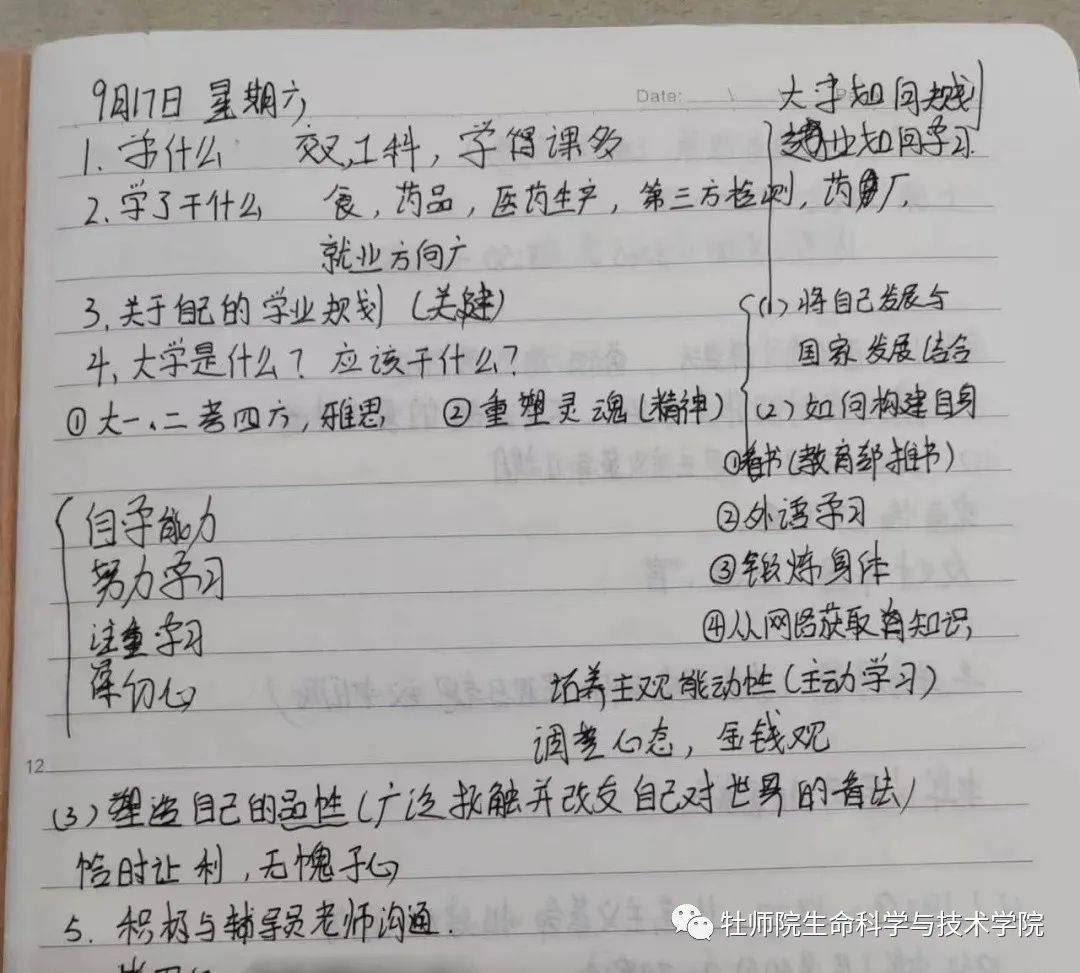 9月17日 星期六
Date:
大学如何规划
1. 学什么 交叉工科，学得课多
业如何学习
2. 学了干什么 食，药品，医药生产，第三方检测，药厂，
就业方向广
3. 关于自己的学业规划（关键）
(1) 将自己发展与
国家发展结合
4. 大学是什么？应该干什么？
① 大一、二考四六，雅思 ② 重塑灵魂（精神）
(2) 如何构建自身
①看书（教育部推书）
②外语学习
③锻炼身体
④从网络获取知识
自学能力
努力学习
注重学习
培养主观能动性（主动学习）
调整心态，金钱观
12
(3) 塑造自己的品性（广泛接触并改变自己对世界的看法）
恰时让利，无愧于心
5. 积极与辅导员老师沟通.
牡师院生命科学与技术学院